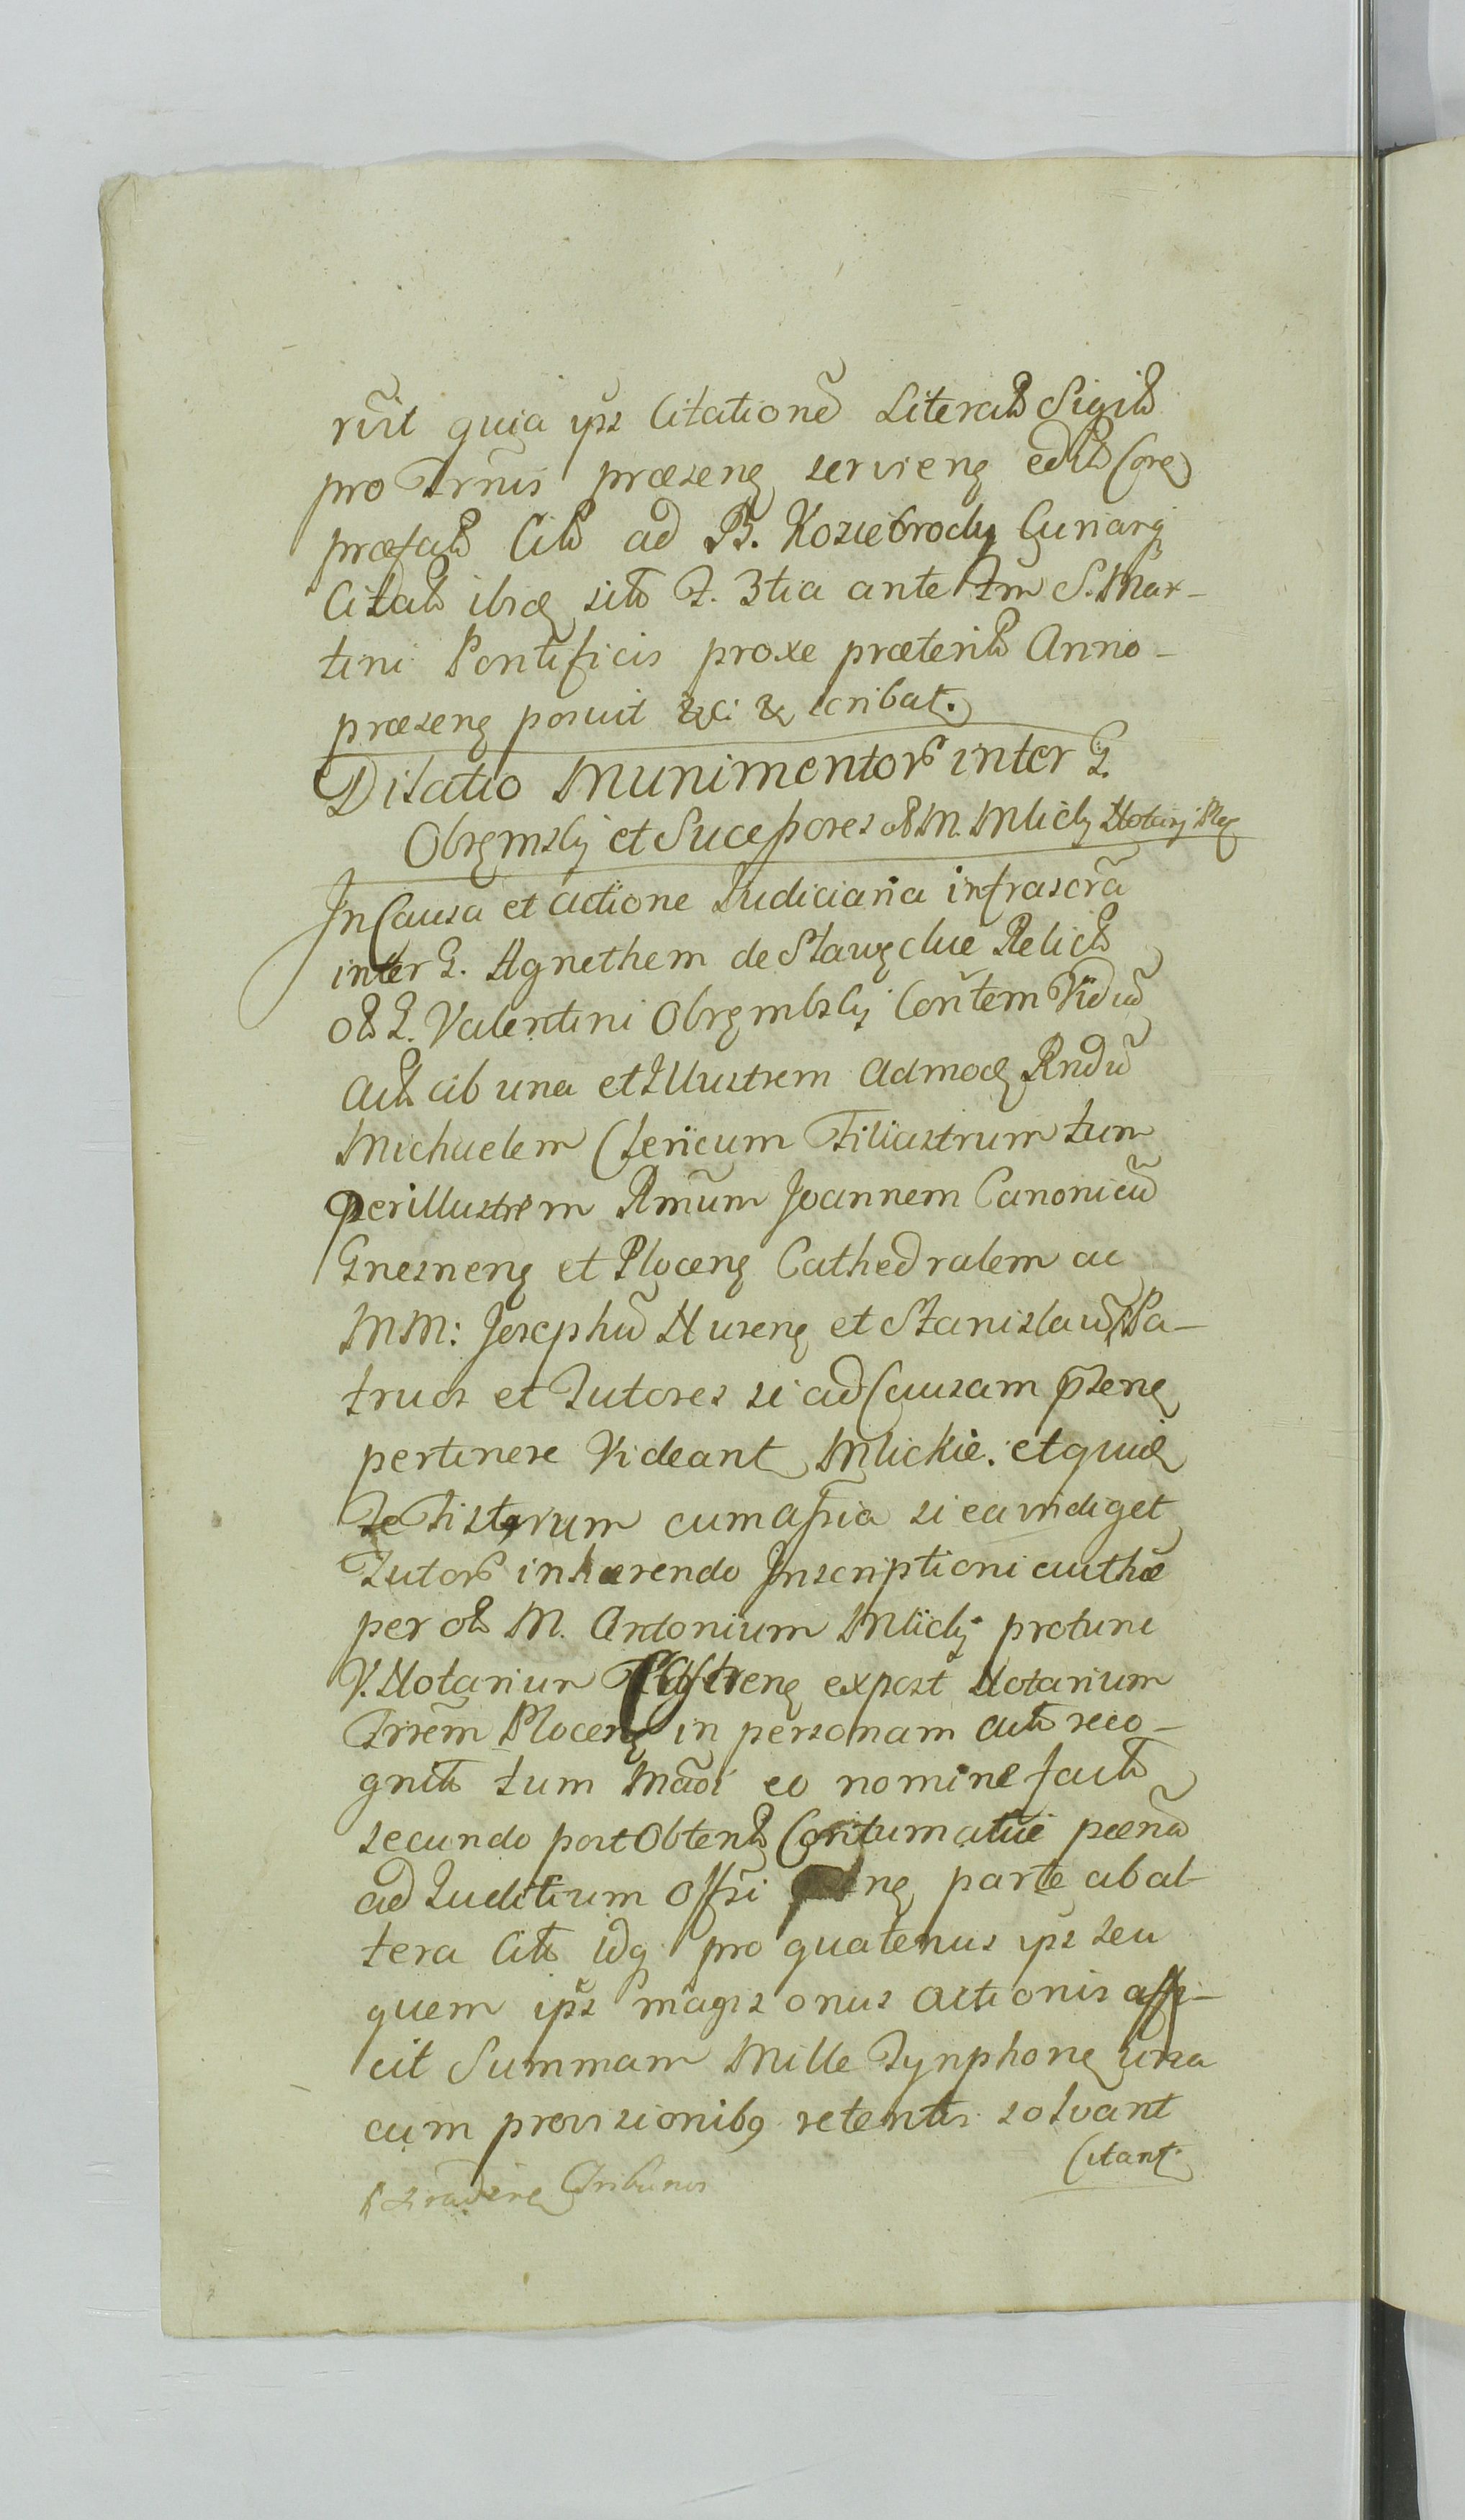 rūit quia ips Citationē Literalt Sigilt
pro Trnis præseng servieng edit Coræ
præfat Cit ad B. Koziebrody Cunarg
Citat ibiq sit F. 3tia ante Fm S. Mar-
tini Pontificis proxe præterit Anno-
præseng posuit &c: & scribat.
Dilatio Munimentor inter G.
Obrembsky et Successores ol M. Mlicky Notarij Plo
In Causa et actione Judiciaria infrascra
inter G. Agnethem de Slawęckie Relict
ol G. Valentini Obrembsky Contem Viduā
Act ab una et Illustrem Admod Rndū
Michaelem Clericum Filiastrum tum
Perillustrem Rmum Joannem Canonicū
Gnesneng et Ploceng Cathedralem ac
MM: Josephū Nureng et Stanislaū Pa-
truos et Tutores si ad Causam pseng
pertinere Videant Mlickie: et quid
Te Fistarum cum assia si ea indiget
Tutor inhærendo Inscriptioni authæ
per ol M. Antonium Mlicky protunc
V. Notarium Castreng expost Notarium
Trrem Ploceng in personam act reco-
gnit tum Mādi eo nomine fact
secundo post obtent Contumatiæ pænā
ad Juditium Offsi parte ab al-
tera Cit Idq pro quatenus ips seu
quem ips magis onus actionis affi-
cit Summam Mille Tynphong una
cum provisionibq retentis solvant
Citant
Tribunis